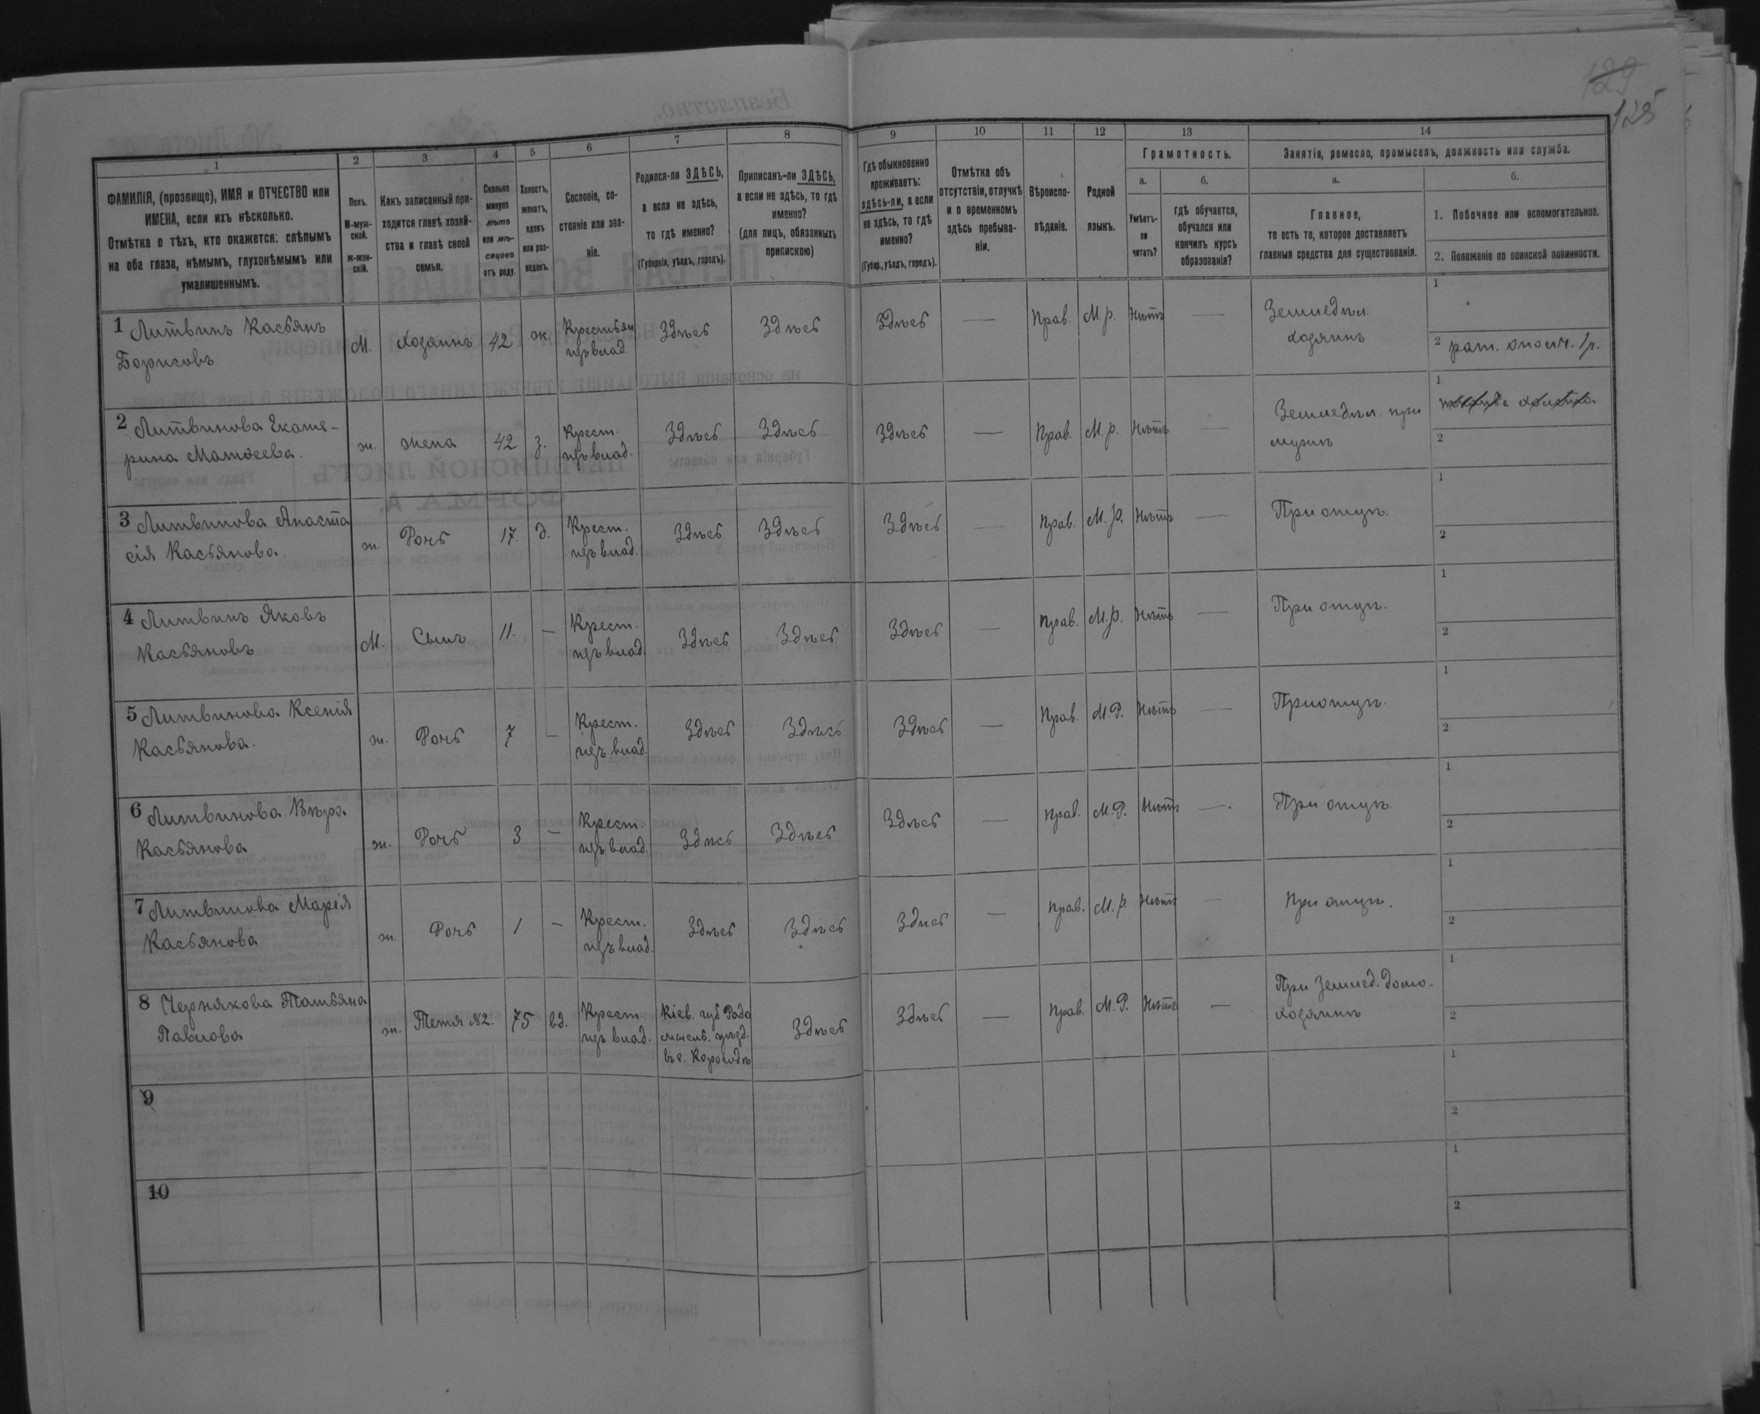 129
125
1
2
3
4
5
6
7
8
9
10
11
12
13
14
ФАМИЛІЯ, (прозвище), ИМЯ и ОТЧЕСТВО или
ИМЕНА, если ихъ нѣсколько.
Отмѣтка о тѣхъ, кто окажется: слѣпымъ
на оба глаза, нѣмымъ, глухонѣмымъ или
умалишеннымъ.
Полъ.
М-муж-
ской.
ж-жен-
скій.
Какъ записанный при-
ходится главѣ хозяй-
ства и главѣ своей
семьи.
Сколько
минуло
лѣтъ
или мѣ-
сяцевъ
отъ роду.
Холостъ,
женатъ,
вдовъ
или раз-
веденъ.
Сословіе, со-
стояніе или зва-
ніе.
Родился-ли ЗДѢСЬ,
а если не здѣсь,
то гдѣ именно?
(Губернія, уѣздъ, городъ).
Приписанъ-ли ЗДѢСЬ,
а если не здѣсь, то гдѣ
именно?
(для лицъ, обязанныхъ
припискою)
Гдѣ обыкновенно
проживаетъ:
здѣсь-ли, а если
не здѣсь, то гдѣ
именно?
(Губер., уѣздъ, городъ).
Отмѣтка объ
отсутствіи, отлучкѣ
и о временномъ
здѣсь пребыва-
ніи.
Вѣроиспо-
вѣданіе.
Родной
языкъ.
Грамотность.
а.
б.
Умѣетъ-
ли
читать?
гдѣ обучается,
обучался или
кончилъ курсъ
образованія?
Занятіе, ремесло, промыселъ, должность или служба.
а.
б.
Главное,
то есть то, которое доставляетъ
главныя средства для существованія.
1. Побочное или вспомогательное.
2. Положеніе по воинской повинности.
1 Литвинъ Касьянъ
Борисовъ
М. Хозяинъ 42 ж. Крестьян
изъ влад. Здѣсь Здѣсь Здѣсь — Прав. М.р. Нѣтъ — Земледѣл.
хозяинъ
1
2 рат. ополч. 1р.
2 Литвинова Екате-
рина Матвеева.
ж. жена 42 з. Крест.
изъ влад. Здѣсь Здѣсь Здѣсь — Прав. М.р. Нѣтъ — Земледѣл. при
мужѣ
1
2
3 Литвинова Анаста
сія Касьянова.
ж. Дочь 17. д. Крест.
изъ влад. Здѣсь Здѣсь Здѣсь — Прав. М.р. Нѣтъ — При отцѣ.
1
2
4 Литвинъ Яковъ
Касьяновъ
М. Сынъ 11. — Крест.
изъ влад. Здѣсь Здѣсь Здѣсь — Прав. М.р. Нѣтъ — При отцѣ.
1
2
5 Литвинова Ксенія
Касьянова.
ж. Дочь 7 — Крест.
изъ влад. Здѣсь Здѣсь Здѣсь — Прав. М.Р. Нѣтъ — При отцѣ.
1
2
6 Литвинова Вѣра
Касьянова
ж. Дочь 3 — Крест.
изъ влад. Здѣсь Здѣсь Здѣсь — Прав. М.Р. Нѣтъ — При отцѣ
1
2
7 Литвинова Марія
Касьянова
ж. Дочь 1 — Крест.
изъ влад. Здѣсь Здѣсь Здѣсь — Прав. М.р Нѣтъ — При отцѣ.
1
2
8 Чернякова Татьяна
Павлова
ж. Тетя №2. 75 вд. Крест.
изъ влад. Кіев. губ Радо
мысль. уѣзд.
въ с. Корогодѣ Здѣсь Здѣсь — Прав. М.Р. Нѣтъ — При Землед. домо-
хозяинѣ
1
2
9
1
2
10
1
2